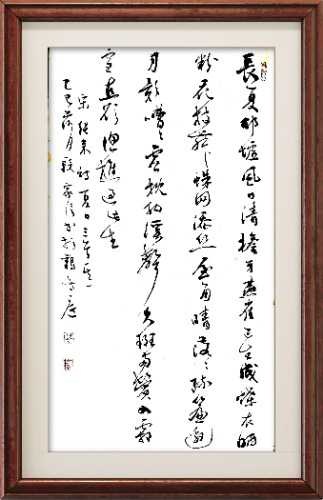 長夏邨墟風日清檐牙燕雀已生成蝶衣晒
粉花枝舞蛛网添丝屋角晴落々疏簾邀
月影嘈々虚枕納溪聲久斑兩鬢如霜
雪直欲漁樵過此生
宋張耒詩夏日三首其一
乙巳荷月